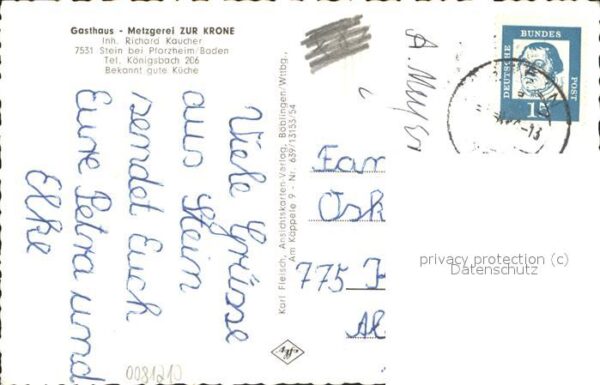 Gasthaus - Metzgerei ZUR KRONE
Inh. Richard Kaucher
7531 Stein bei Pforzheim/Baden
Tel. Königsbach 206
Bekannt gute Küche
Viele Grüsse
aus Stein
sendet Euch
Eure Petra und
Elke
Karl Fleisch, Ansichtskarten-Verlag, Böblingen/Wttbg.
Am Käppele 9 - Nr. 639/13153/54
DEUTSCHE BUNDES POST
15
-13
Fam
Osk
775
privacy protection (c)
Datenschutz
0081210